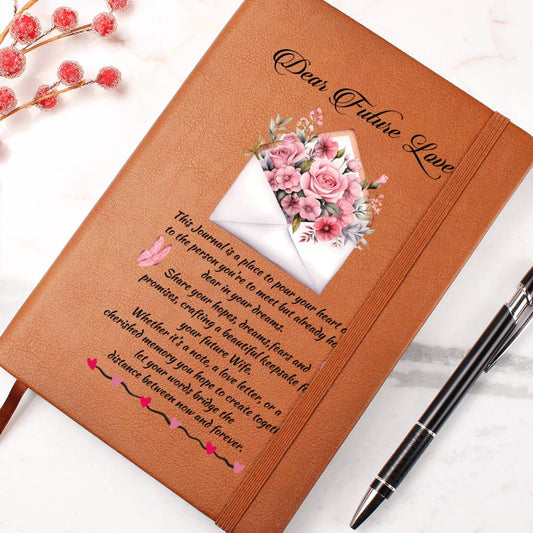 Dear Future Love
This Journal is a place to pour your heart o
to the person you're to meet but already he
dear in your dreams.
Share your hopes, dreams, fears and
promises, crafting a beautiful keepsake f
your future Wife.
Whether it's a note, a love letter, or a
cherished memory you hope to create togeth
let your words bridge the
distance between now and forever.